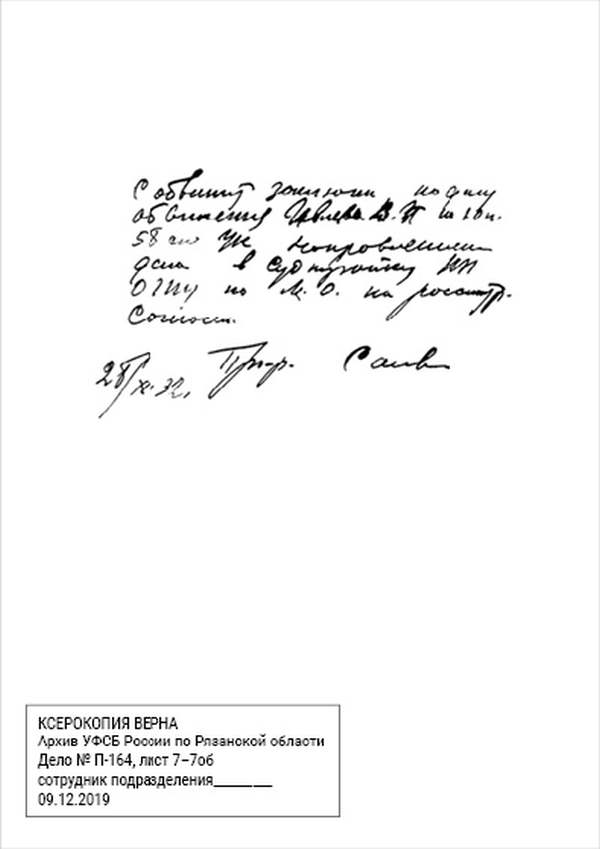 С обвинит заключени по делу
обвинения Ивлева В. П по 10 п.
58 ст УК направлением
дела в Суд тройку ПП
ОГПУ по М. О. на рассмтр.
Согласен.
28/XI-32, Пр-р.
КСЕРОКОПИЯ ВЕРНА
Архив УФСБ России по Рязанской области
Дело № П-164, лист 7–7об
сотрудник подразделения________
09.12.2019